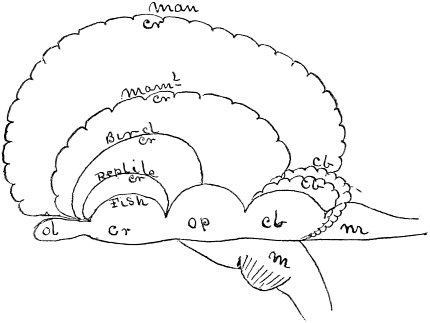 man
cr
mam^l
cr
Bird
cr
Reptile
cr
Fish
cb
cb
ol
cr
op
cb
m
m